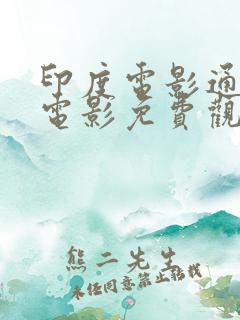 印度電影通
電影免費觀
熊二先生
未经同意禁止转载